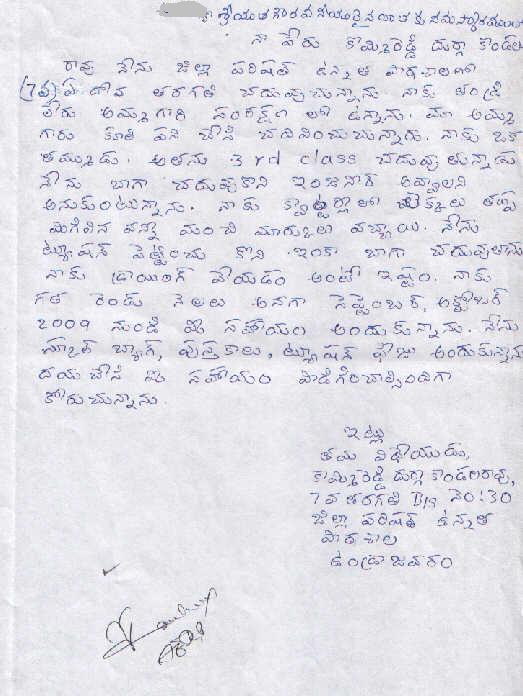 శ్రీయుత గౌరవనీయులైన యాతకు నమస్కారములు
నా పేరు కొమ్మిరెడ్డి దుర్గా కొండల
రావు నేను జిల్లా పరిషత్ ఉన్నత పాఠశాలలో
(7వ) ఏడవ తరగతి చదువుచున్నాను. నాకు తండ్రి
లేరు అమ్మగారి సంరక్షణ లో ఉన్నాను. మా అమ్మ
గారు కూలి పని చేసి చదివించుచున్నారు. నాకు ఒక
తమ్ముడు. అతను 3rd class చదువుతున్నాడు
నేను బాగా చదువుకొని ఇంజనీర్ అవ్వాలని
అనుకుంటున్నాను. నాకు క్వార్టర్లీలో లెక్కలు తప్ప
మిగిలిన వన్నీ మంచి మార్కులు వచ్చాయి. నేను
ట్యూషన్ పెట్టించు కొని ఇంకా బాగా చదువుతాను
నాకు డ్రాయింగ్ వేయడం అంటే ఇష్టం. నాకు
గత రెండు నెలలు అనగా సెప్టెంబర్, అక్టోబర్
2009 నుండి మీ సహాయం అందుకున్నాను. నేను
స్కూల్ బ్యాగ్, పుస్తకాలు, ట్యూషన్ ఫీజు అందుకున్నాను
దయచేసి మీ సహాయం పొడిగించాల్సిందిగా
కోరుచున్నాను.
ఇట్లు
తమ విధేయుడు,
కొమ్మిరెడ్డి దుర్గా కొండలరావు,
7వ తరగతి B/s నెం:30
జిల్లా పరిషత్ ఉన్నత
పాఠశాల
ఉండ్రాజవరం